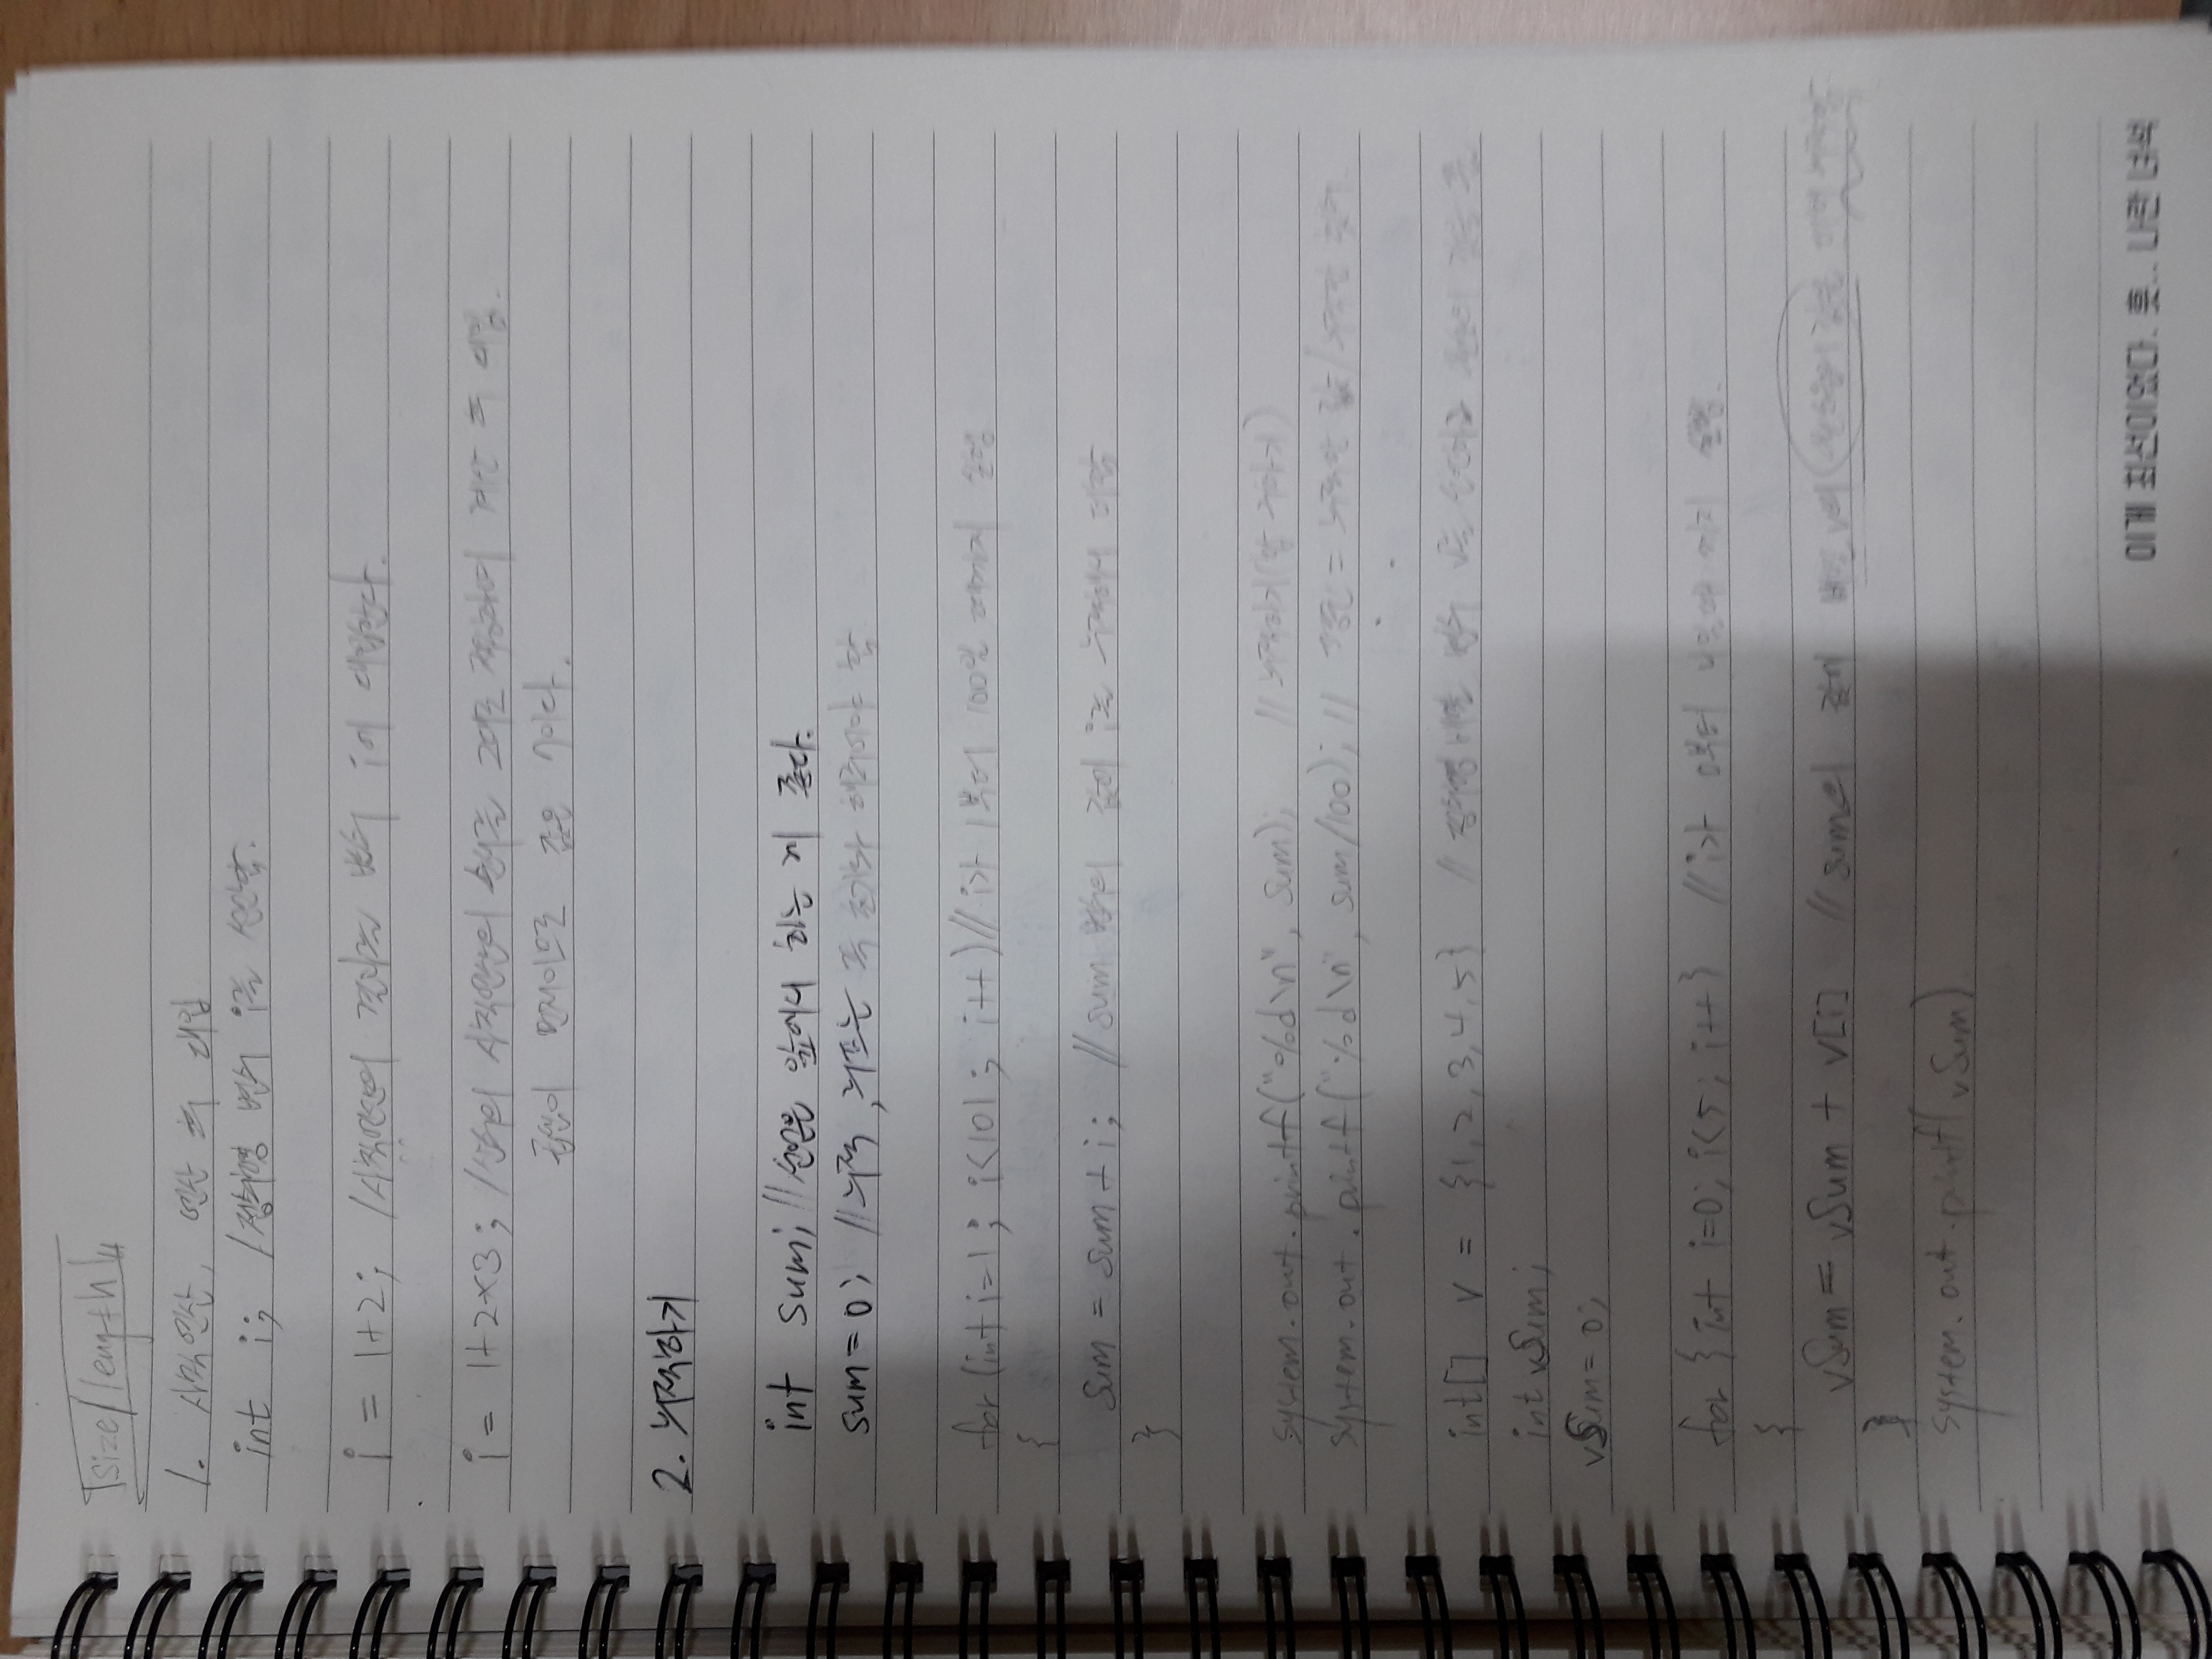 size/length
1. 사칙연산, 연산 후 대입
int i; /정수형 변수 i를 선언함.
i = 1+2; /사칙연산의 결과를 변수 i에 대입한다.
i = 1+2×3; /산수의 사칙연산의 순서를 그대로 적용하여 계산 후 대입.
곱셈이 먼저이므로 값은 7이다.
2. 누적하기
int sum; //선언은 앞에서 하는 게 좋다.
sum=0; //누적, 루프는 꼭 초기화 해주어야 함
for (int i=1; i<101; i++) //i가 1부터 100일 때까지 실행
{
sum = sum + i; //sum 변수의 값에 i를 누적해서 더함
}
system.out.printf("%d\n", sum); //누적하기(합 구하기)
system.out.printf("%d\n", sum/100); // 평균 = 누적한 값/누적한 횟수.
int[] v = {1,2,3,4,5} //정수형 배열 변수 v를 선언하고 원소의 값을 줌
int vSum;
vSum=0;
for {int i=0; i<5; i++} //i가 0부터 4일때 까지 실행.
{
vSum = vSum + v[i] //sum의 값에 배열 v의 값을
}
system.out.printf(vSum)
이게 최선이었다. 훗... 나란 녀석